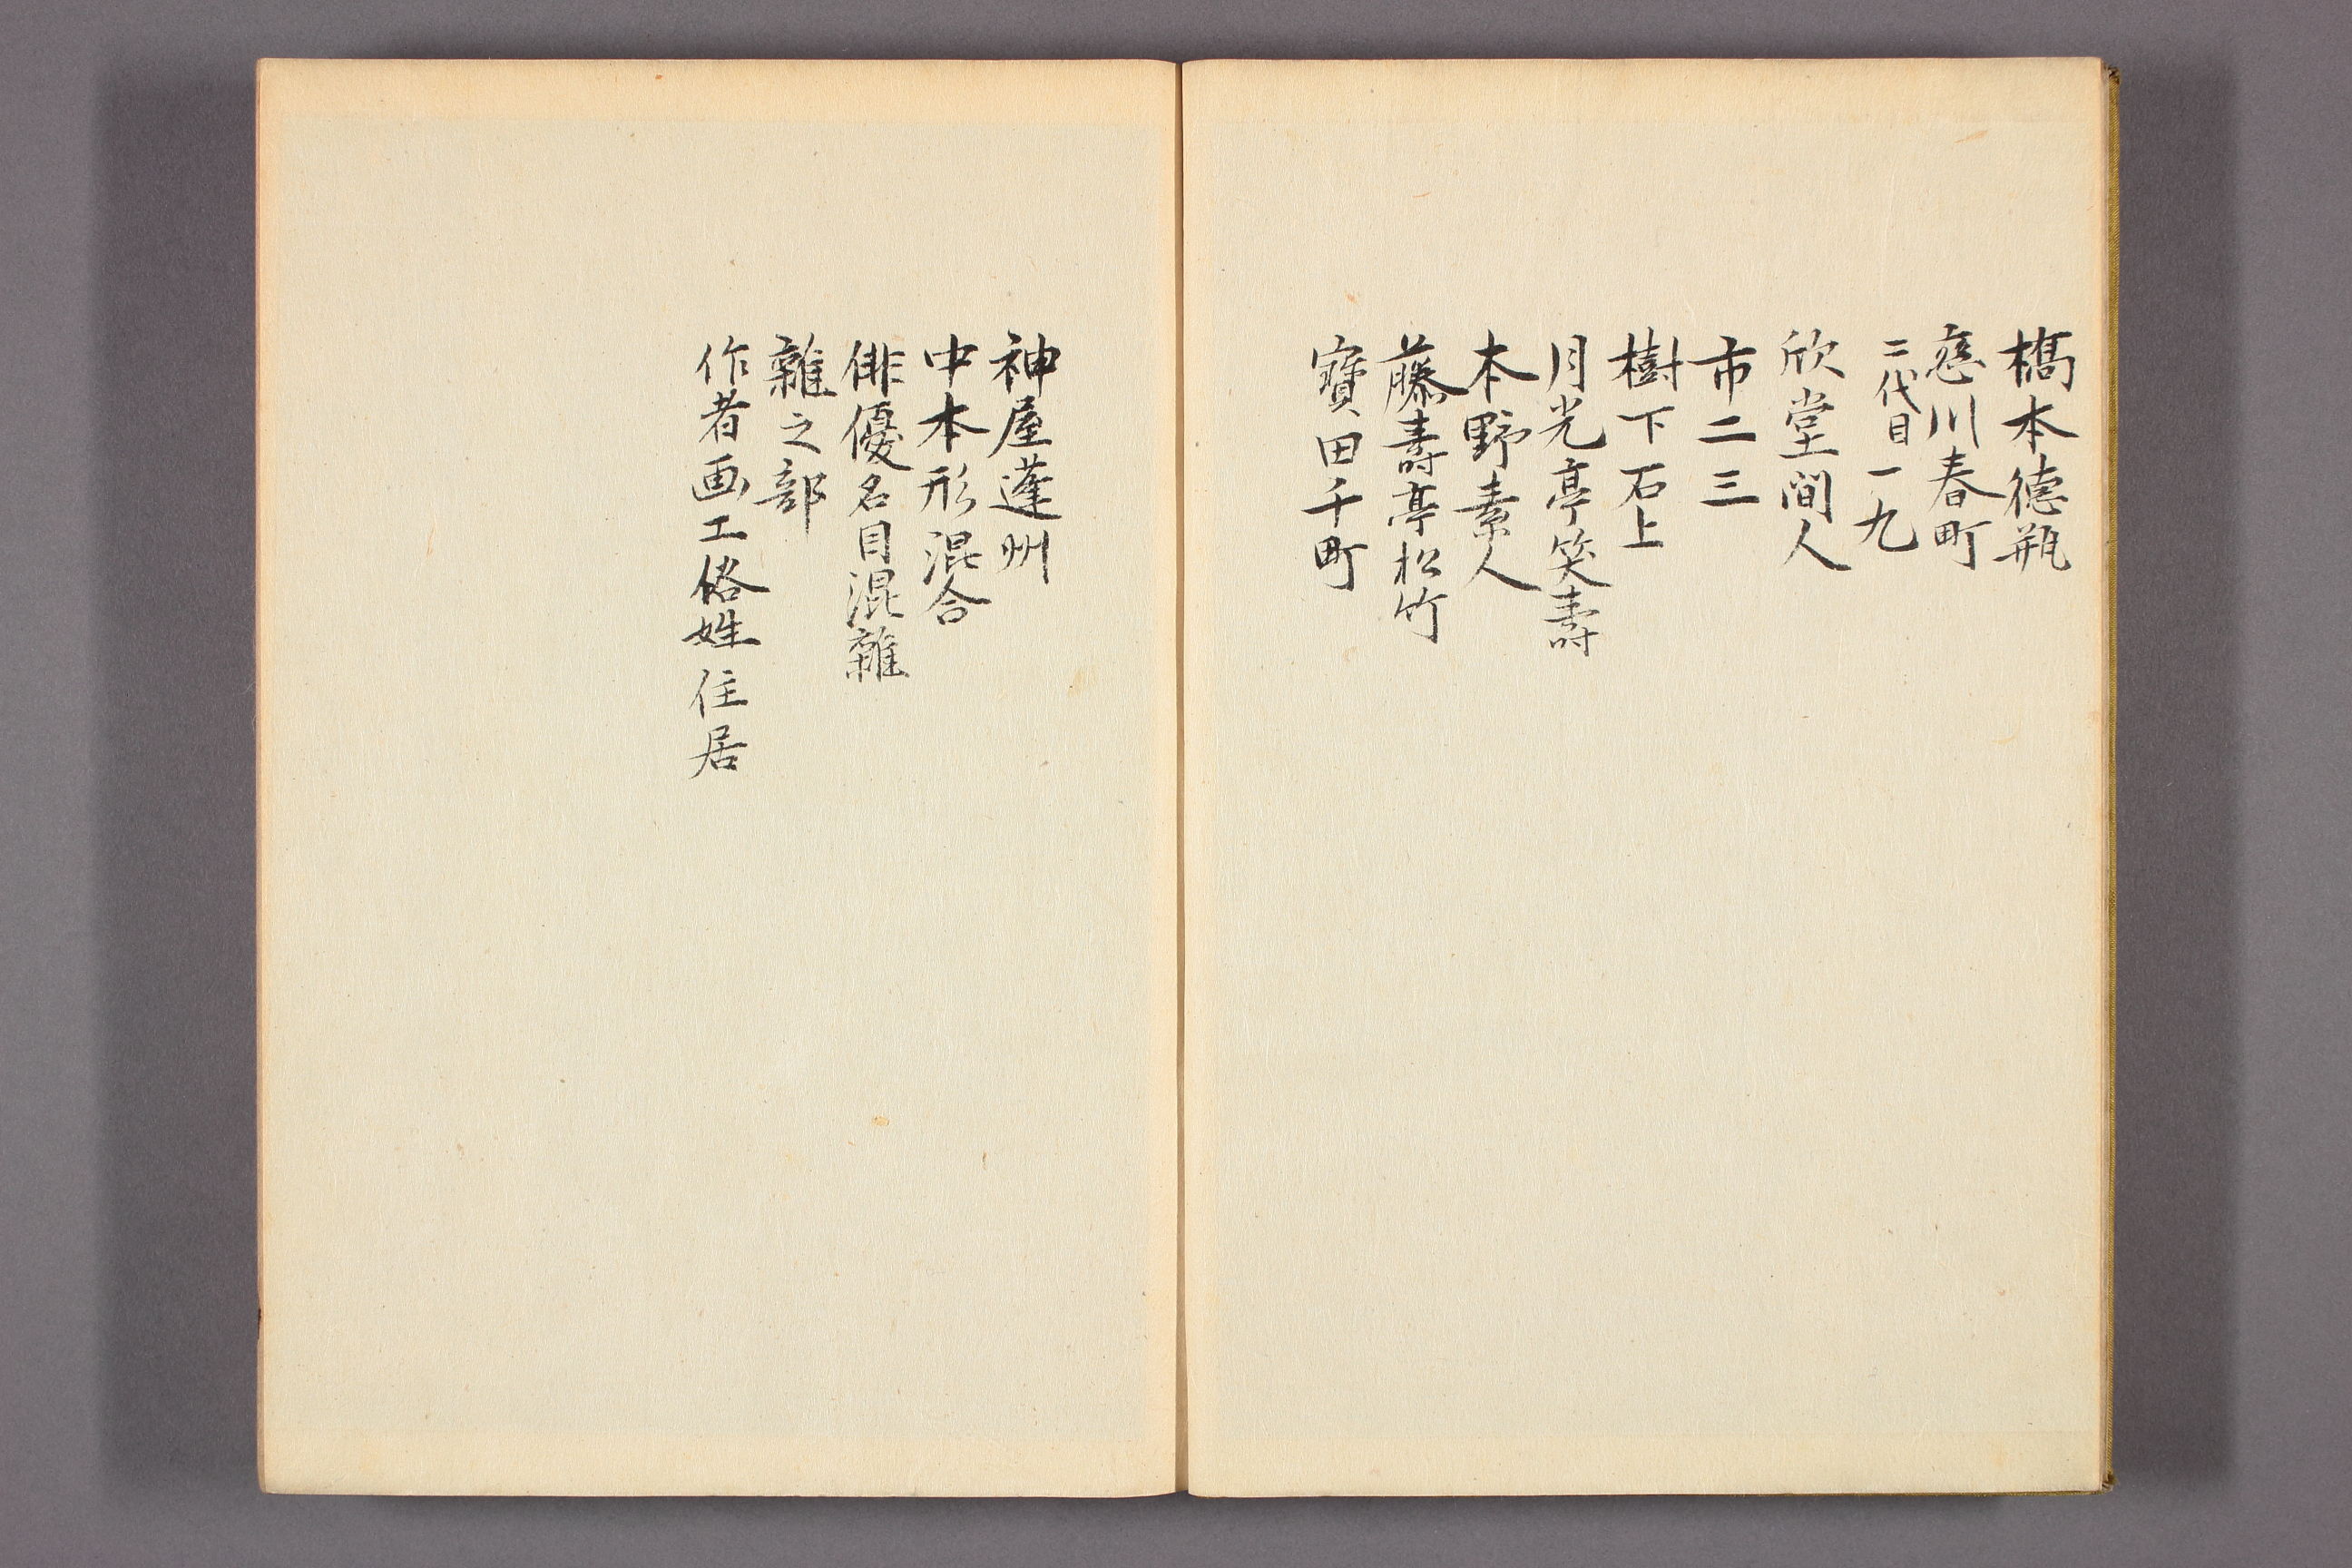 橋本徳瓶
恋川春町
二代目一九
欣堂間人
市二三
樹下石上
月光亭笑壽
本野素人
藤壽亭松竹
寶田千町
神屋蓬州
中本形混合
俳優名目混雜
雜之部
作者画工俗姓住居